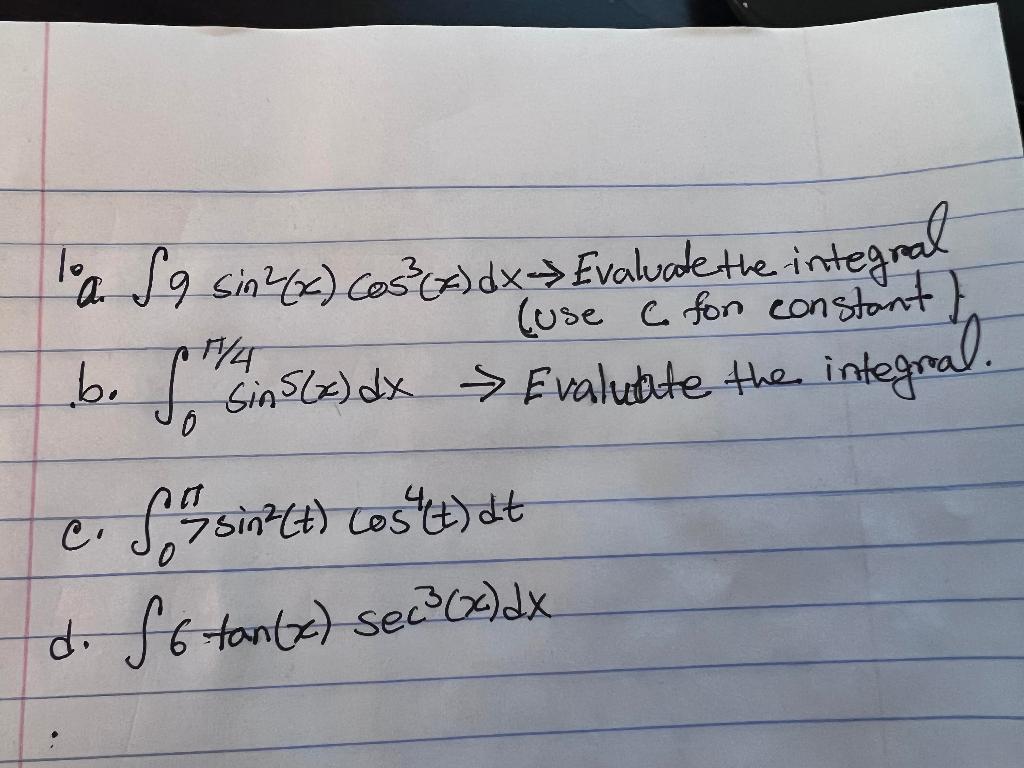 1. a. ∫9 sin²(x) cos³(x) dx → Evaluate the integral
(use C for constant)
b. ∫₀^π/4 sin⁵(x) dx → Evaluate the integral.
c. ∫₀^π 7 sin²(t) cos⁴(t) dt
d. ∫6 tan(x) sec³(x) dx